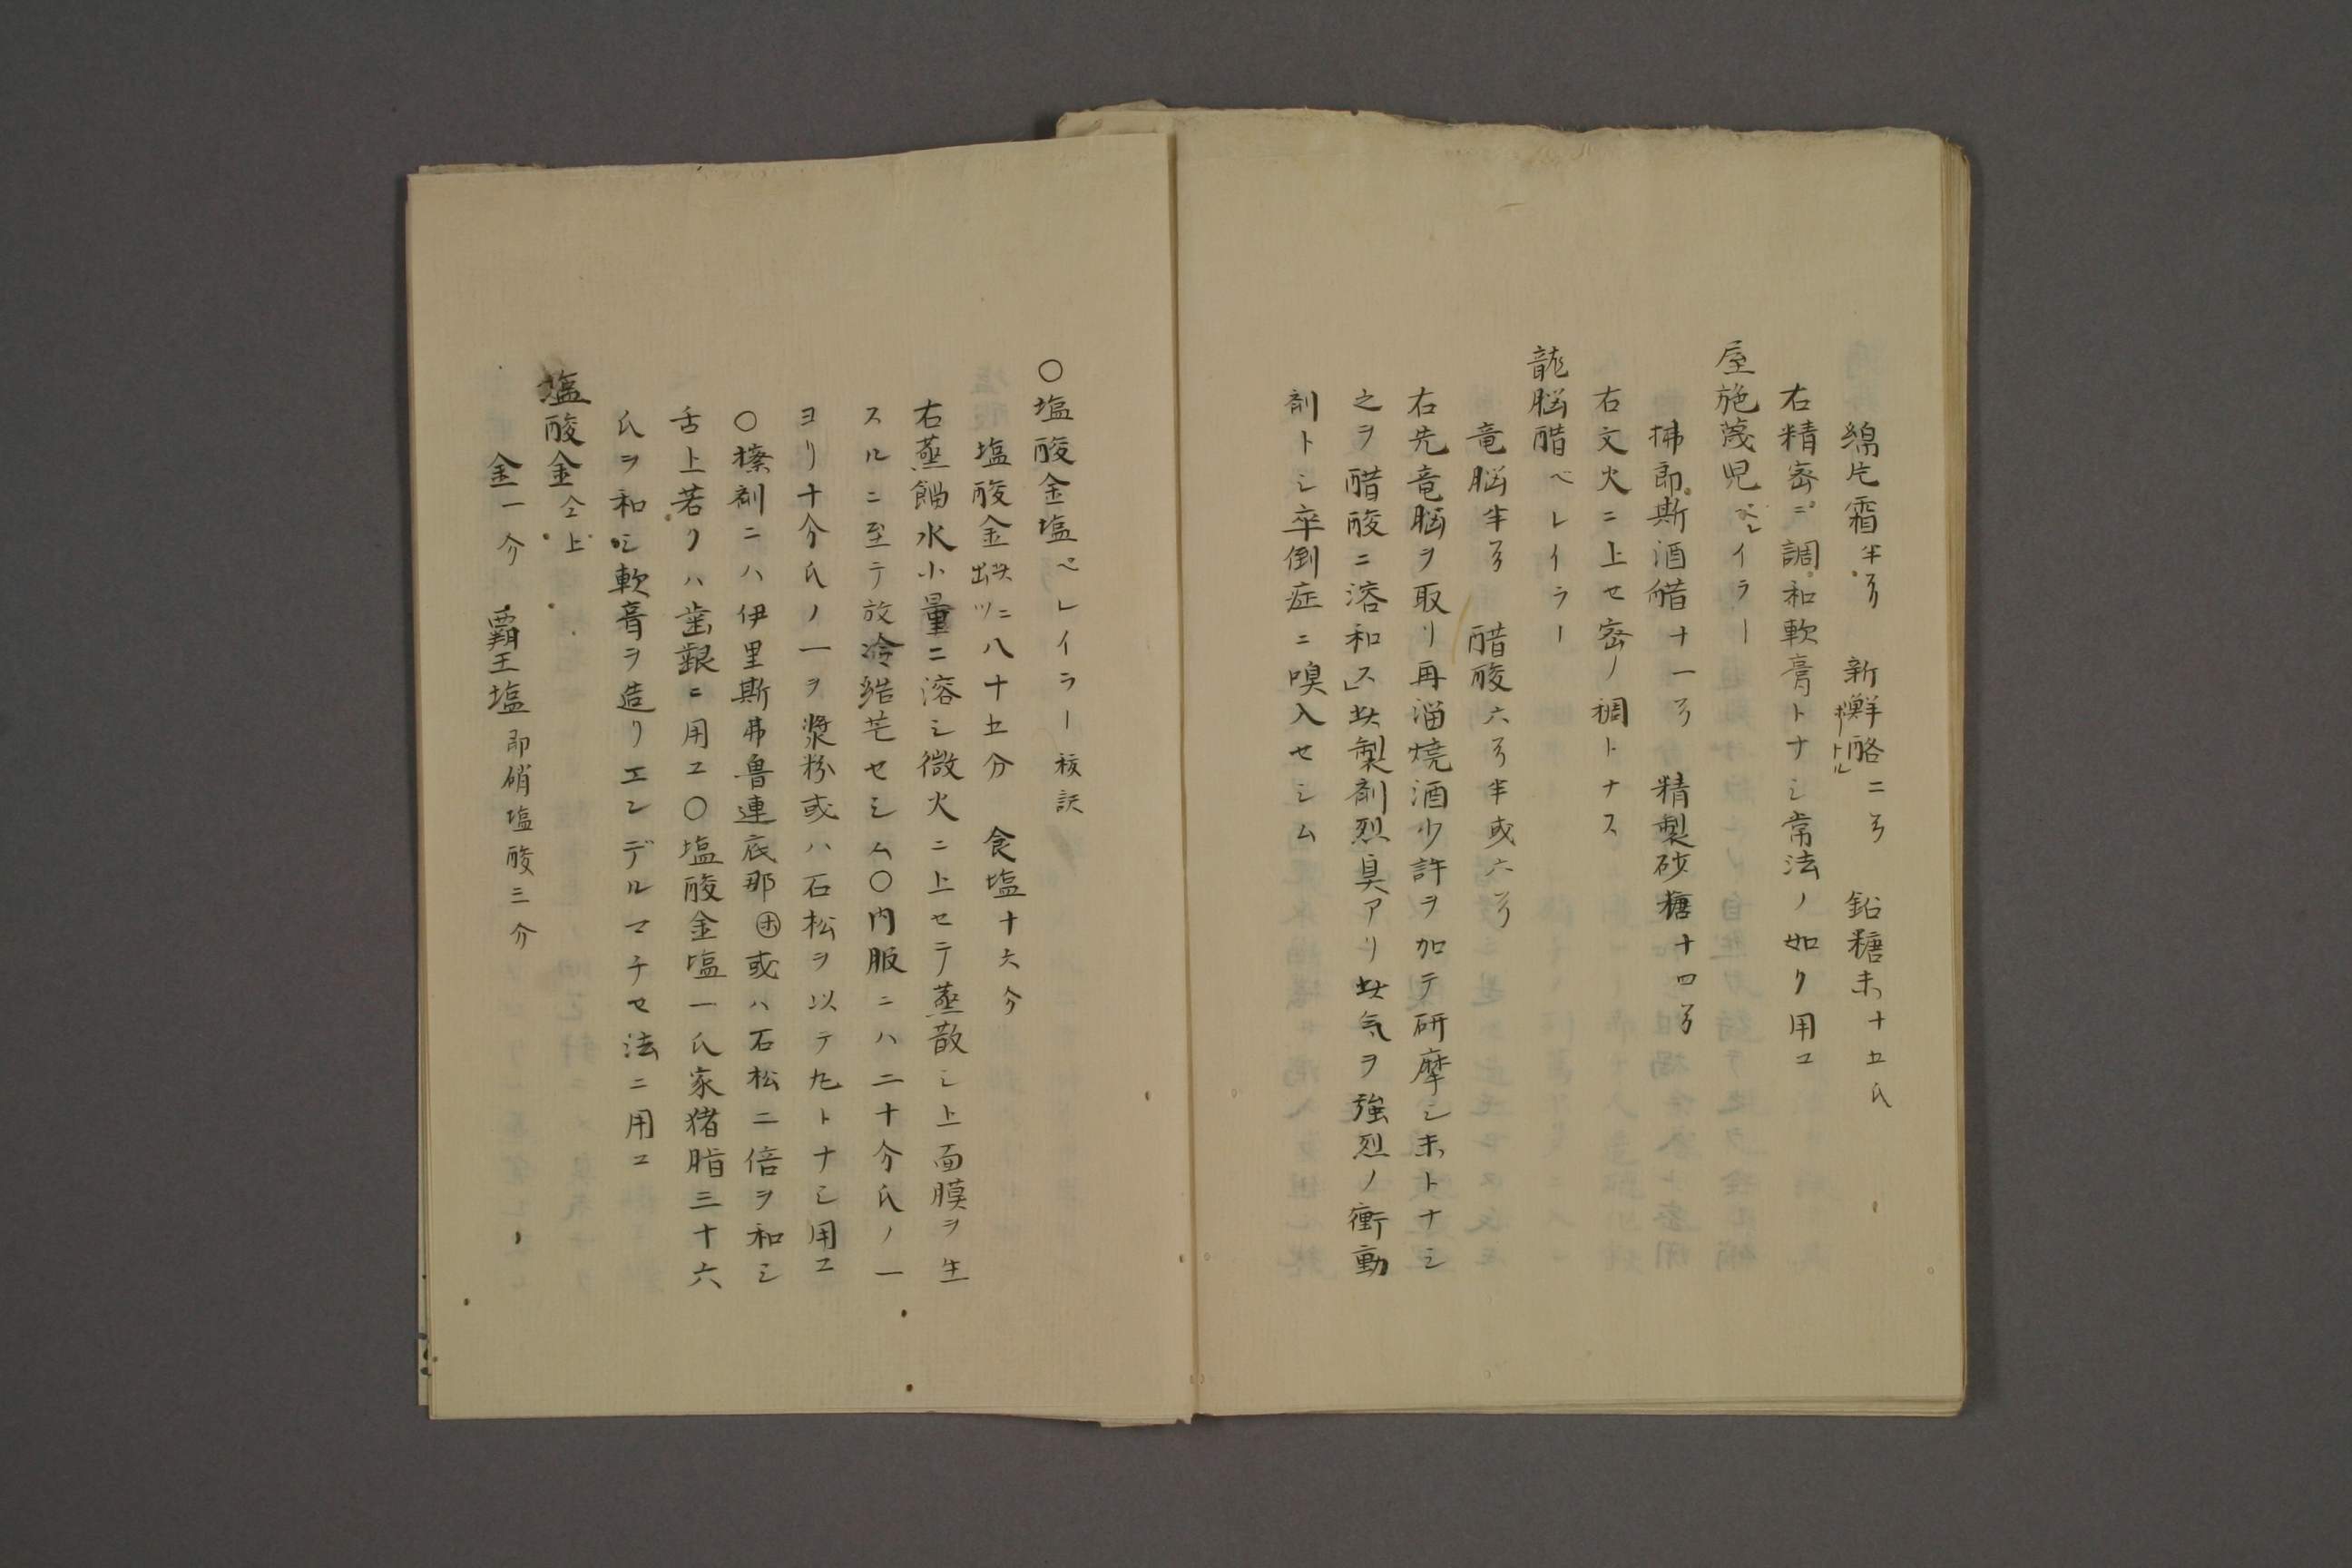 綿片霜半ヲ　新鮮酪二ヲ　鉛糖末十五氏
ボートル
右精密ニ調和軟膏トナシ常法ノ如ク用ユ
屋施蔑児ベレイラー
拂郎斯酒醋十一ヲ　精製砂糖十四ヲ
右文火ニ上セ密ノ稠トナス
龍脳醋ベレイラー
竜脳半ヲ　醋酸六ヲ半或六ヲ
右先竜脳ヲ取リ再溜焼酒少許ヲ加テ研摩シ末トナシ
之ヲ醋酸ニ溶和ス」此製剤烈臭アリ此気ヲ強烈ノ衝動
剤トシ卒倒症ニ嗅入セシム
〇塩酸金塩ベレイラー　核訳
塩酸金　八十五分　食塩十六分
右蒸餾水小量ニ溶シ微火ニ上セテ蒸散シ上面膜ヲ生
スルニ至テ放冷結芒セシム〇内服ニハ二十分氏ノ一
ヨリ十分氏ノ一ヲ漿粉或ハ石松ヲ以テ丸トナシ用ユ
〇擦剤ニハ伊里斯弗魯連底那㊍或ハ石松二倍ヲ和シ
舌上若クハ歯齦ニ用ユ〇塩酸金塩一氏家猪脂三十六
氏ヲ和シ軟膏ヲ造リエンデルマチセ法ニ用ユ
塩酸金仝上
金一分　覇王塩即硝塩酸三分